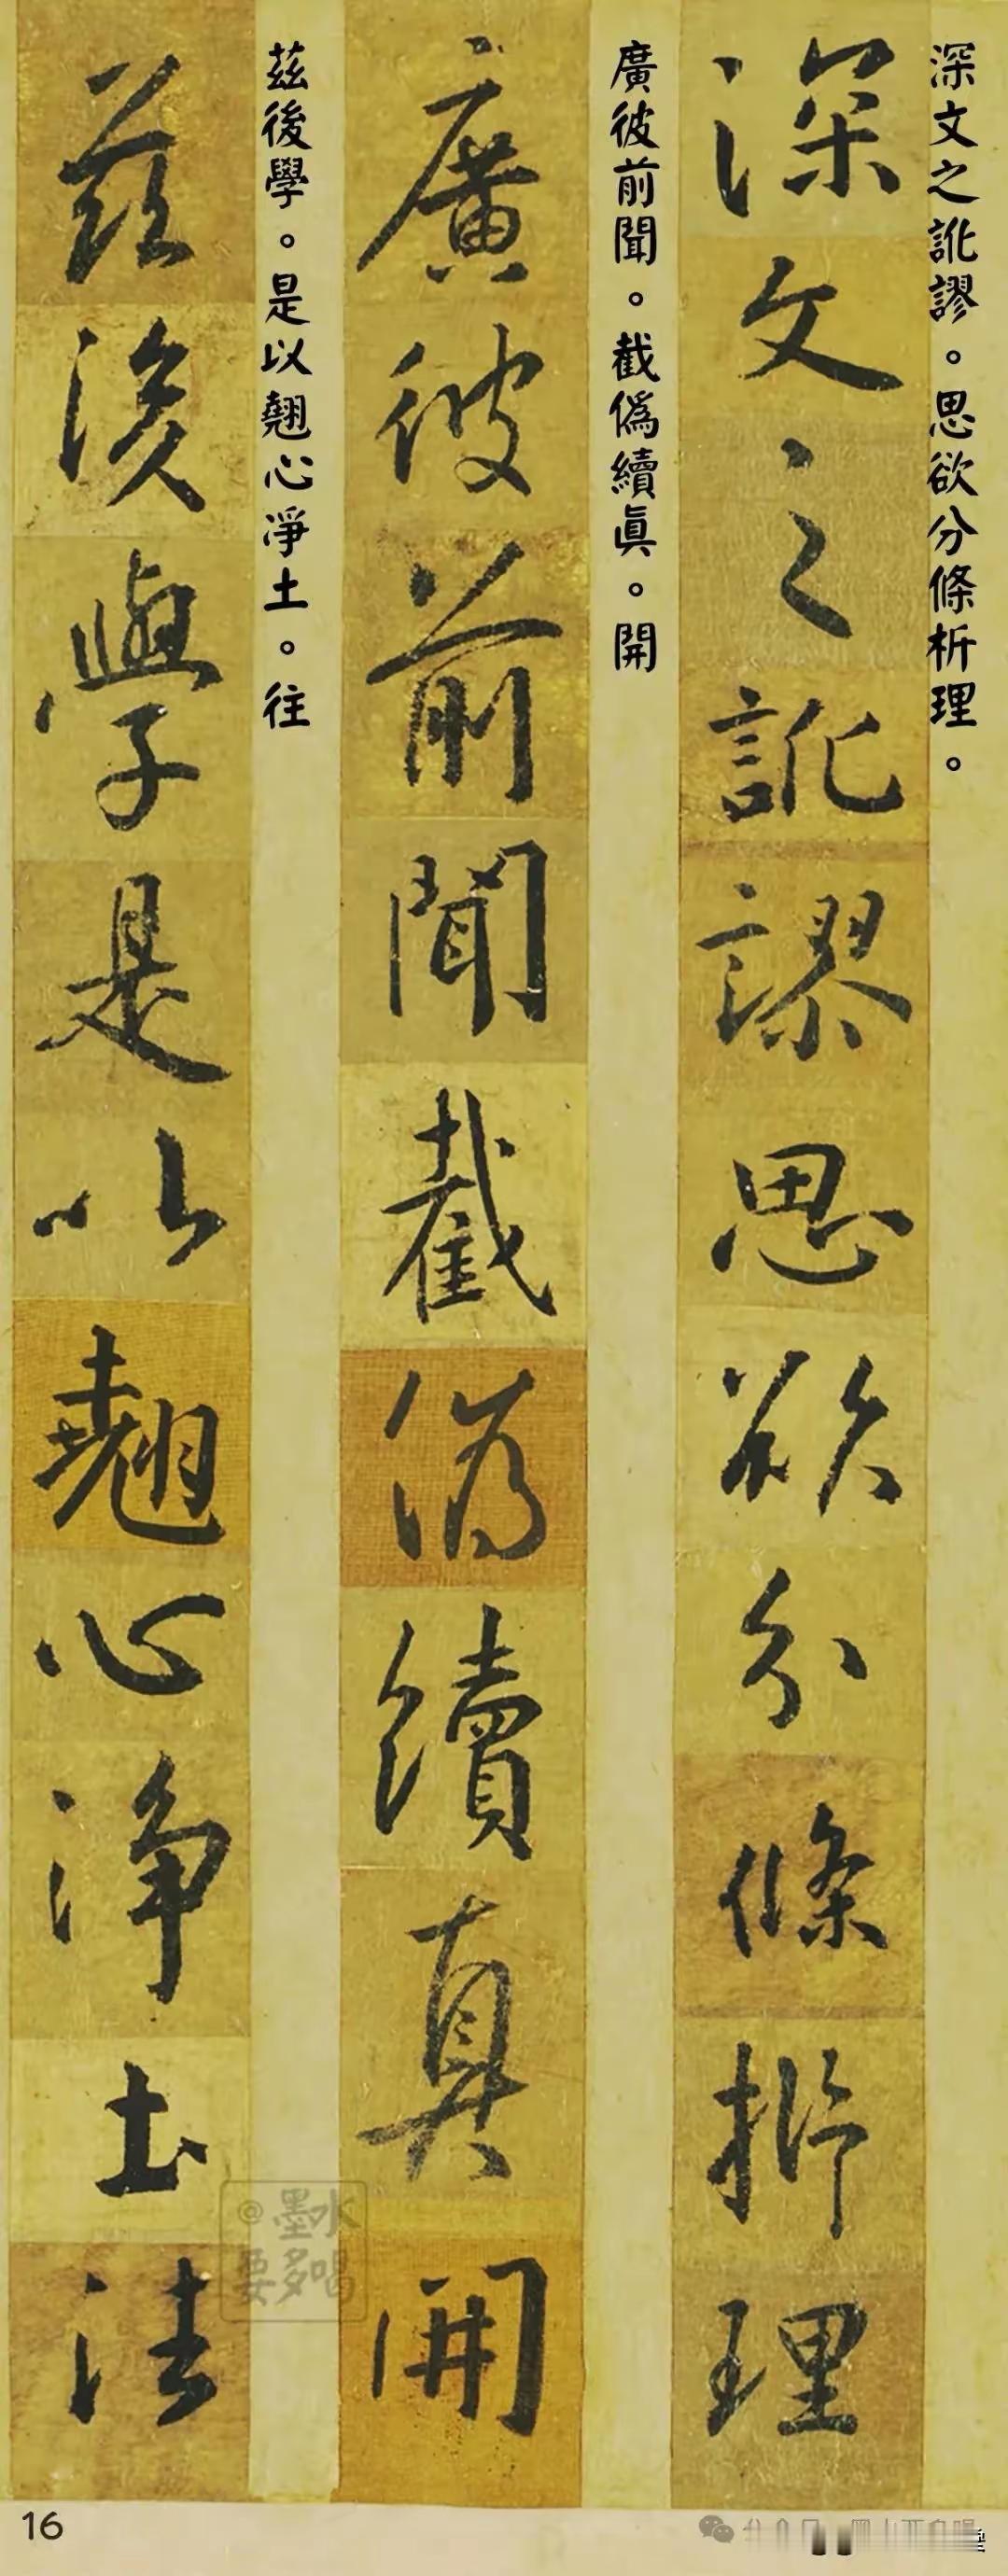 深文之訛謬。思欲分條析理。
深文之訛謬思欲分條析理
廣彼前聞。截偽續眞。開
廣彼前聞截偽續真開
茲後學。是以翹心淨土。往
茲後學是以翹心淨土法
@墨水
要多喝
16